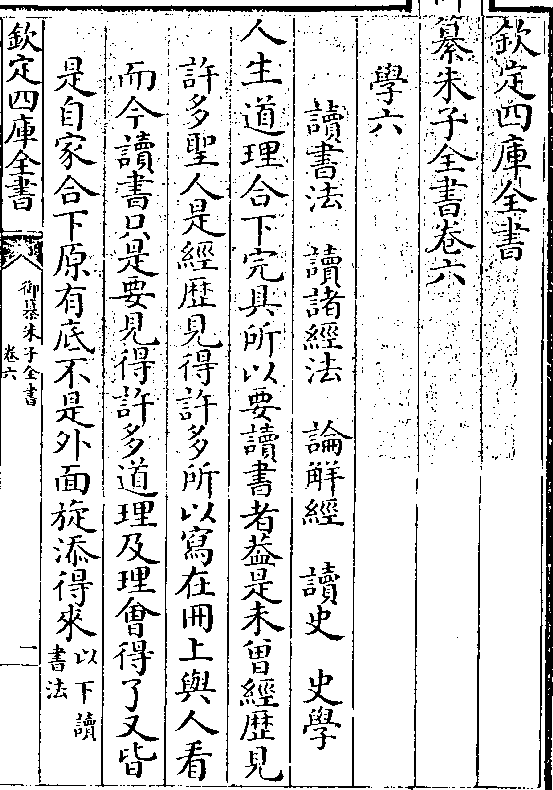 欽定四庫全書
纂朱子全書卷六
學六
讀書法 讀諸經法 論解經 讀史 史學
人生道理合下完具所以要讀書者葢是未曾經歴見
許多聖人是經歴見得許多所以寫在冊上與人看
而今讀書只是要見得許多道理及理㑹得了又皆
是自家合下原有底不是外面旋添得來以下讀
書法
欽定四庫全書
御纂朱子全書
卷六
一